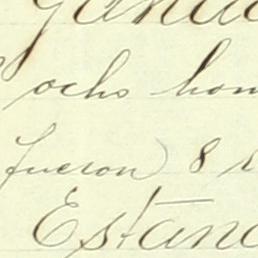 ocho hom
fueron 8
Estan